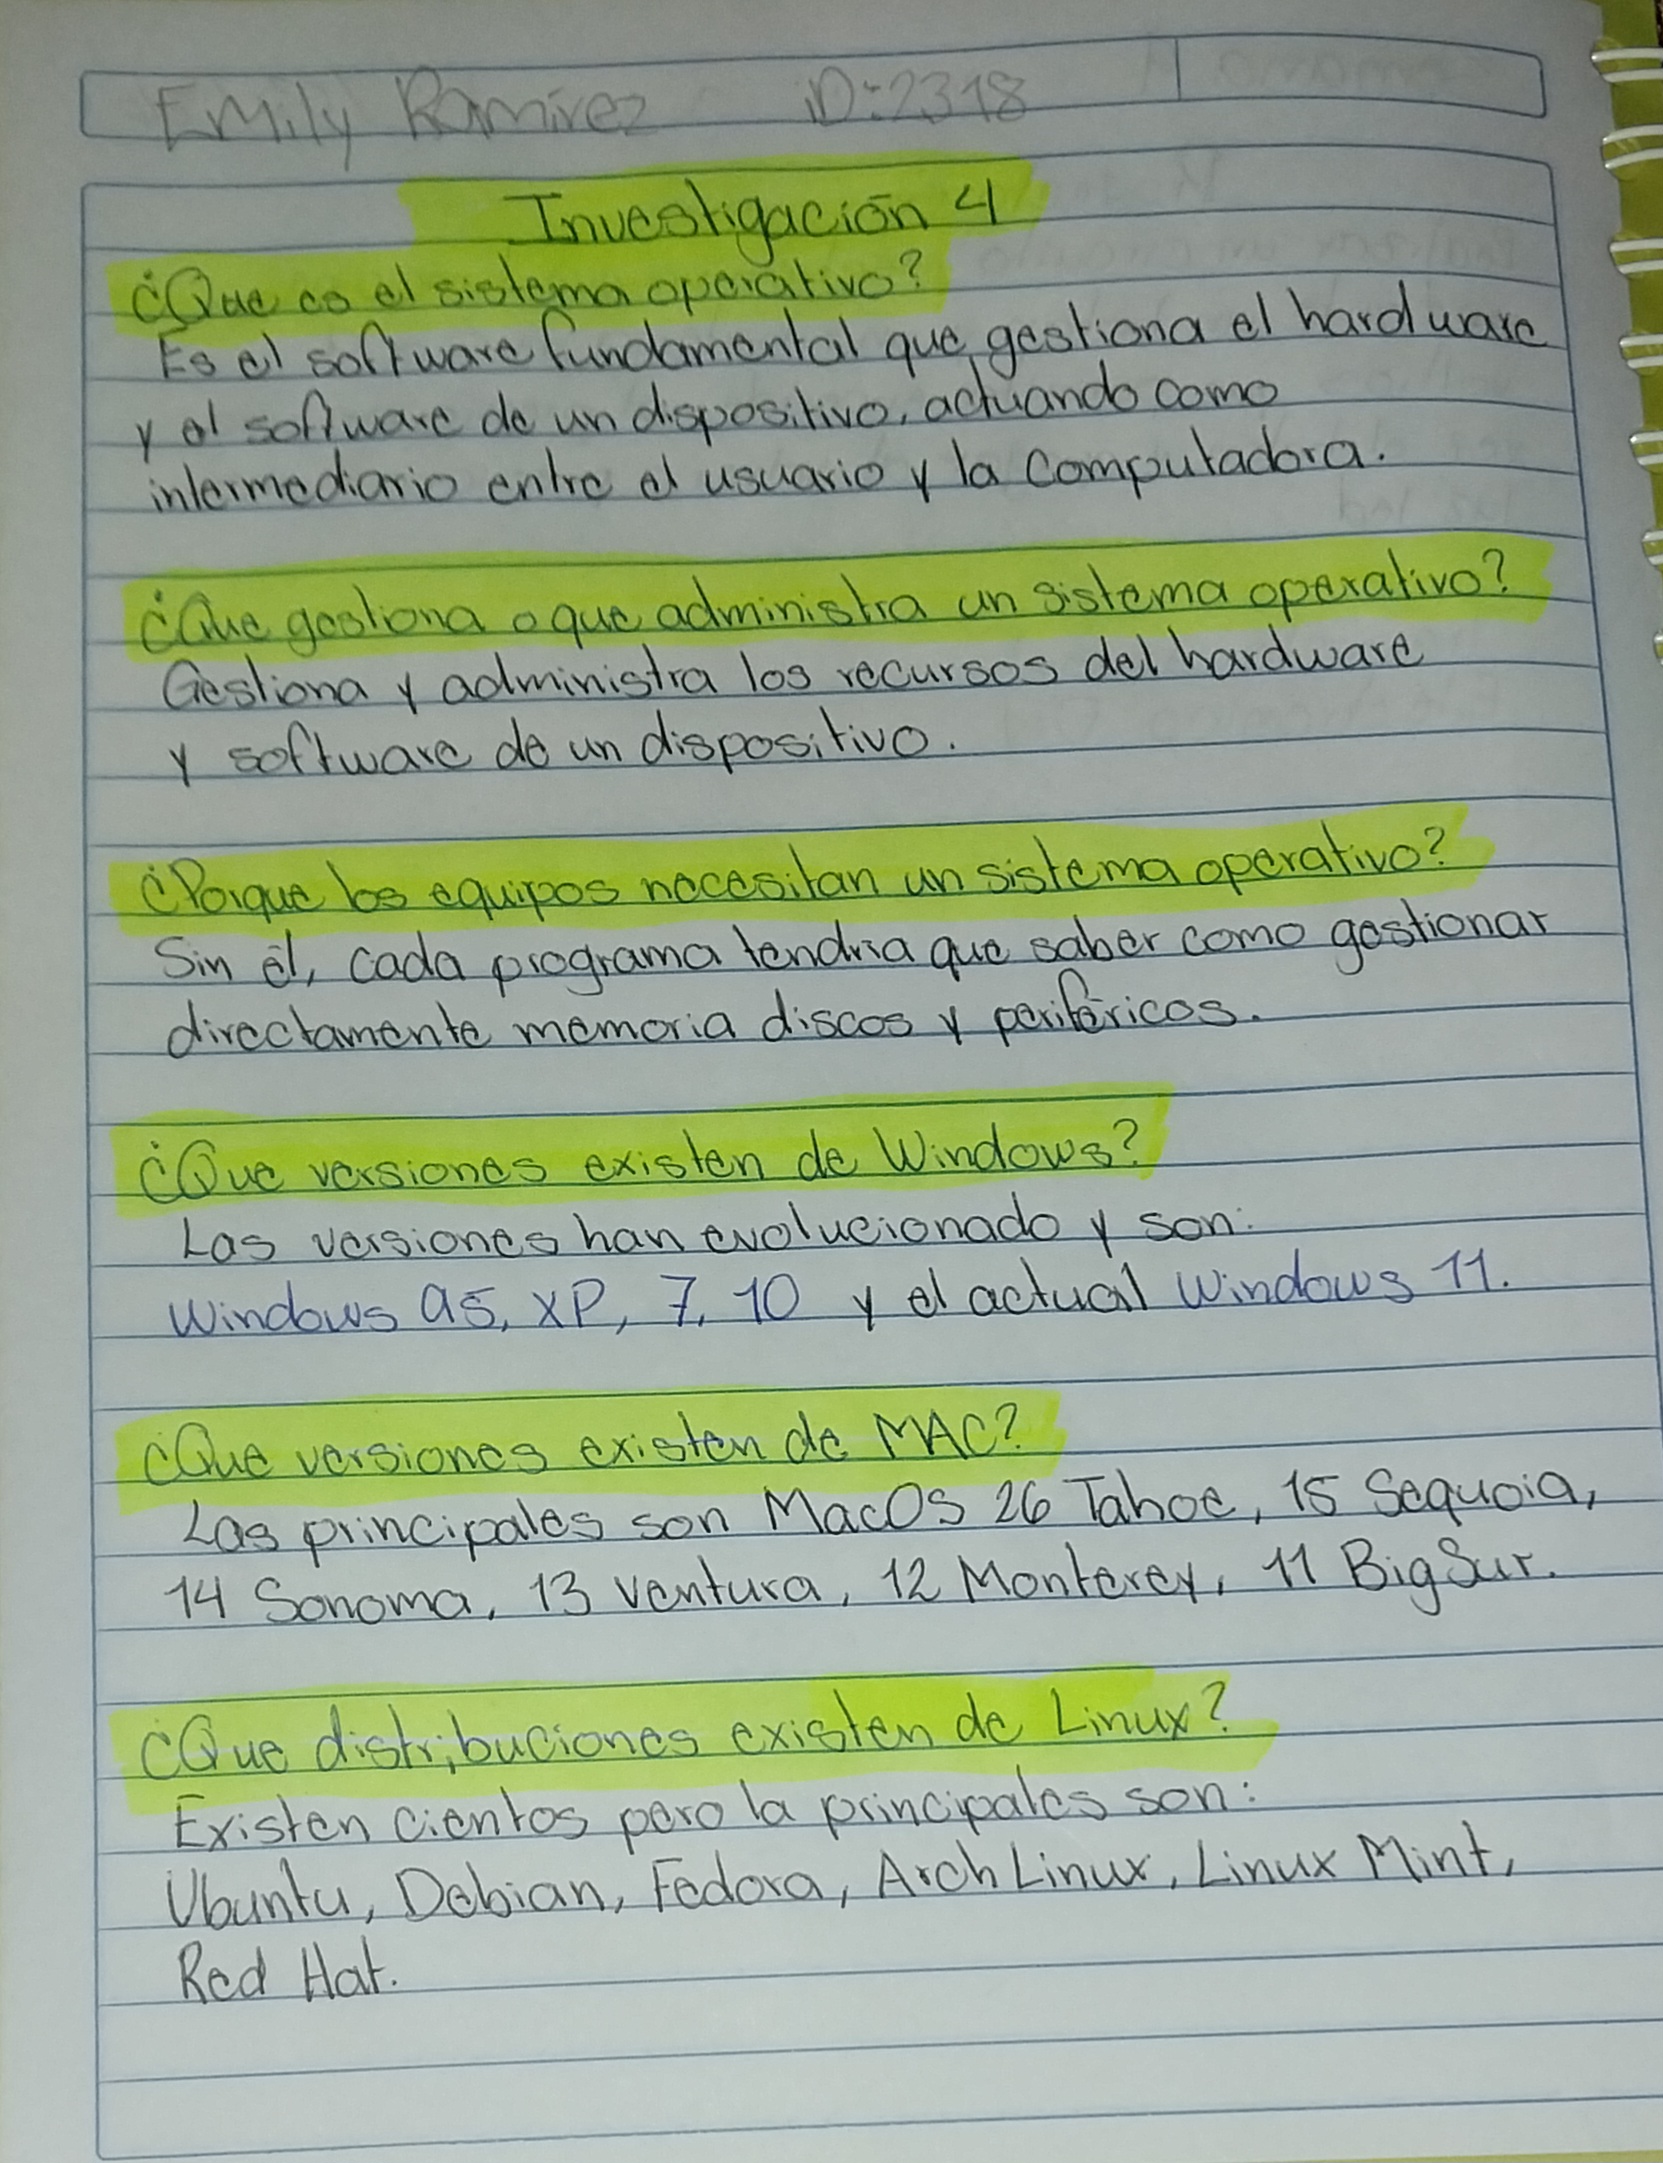 Emily Ramirez ID:2318
Investigación 4
¿Que es el sistema operativo?
Es el software fundamental que gestiona el hardware
y el software de un dispositivo, actuando como
intermediario entre el usuario y la Computadora.
¿Que gestiona o que administra un sistema operativo?
Gestiona y administra los recursos del hardware
y software de un dispositivo.
¿Porque los equipos necesitan un sistema operativo?
Sin él, cada programa tendria que saber como gestionar
directamente memoria discos y periféricos.
¿Que versiones existen de Windows?
Las versiones han evolucionado y son:
Windows 95, XP, 7, 10 y el actual Windows 11.
¿Que versiones existen de MAC?
Las principales son MacOS 26 Tahoe, 15 Sequoia,
14 Sonoma, 13 Ventura, 12 Monterey, 11 Big Sur.
¿Que distribuciones existen de Linux?
Existen cientos pero la principales son:
Ubuntu, Debian, Fedora, Arch Linux, Linux Mint,
Red Hat.